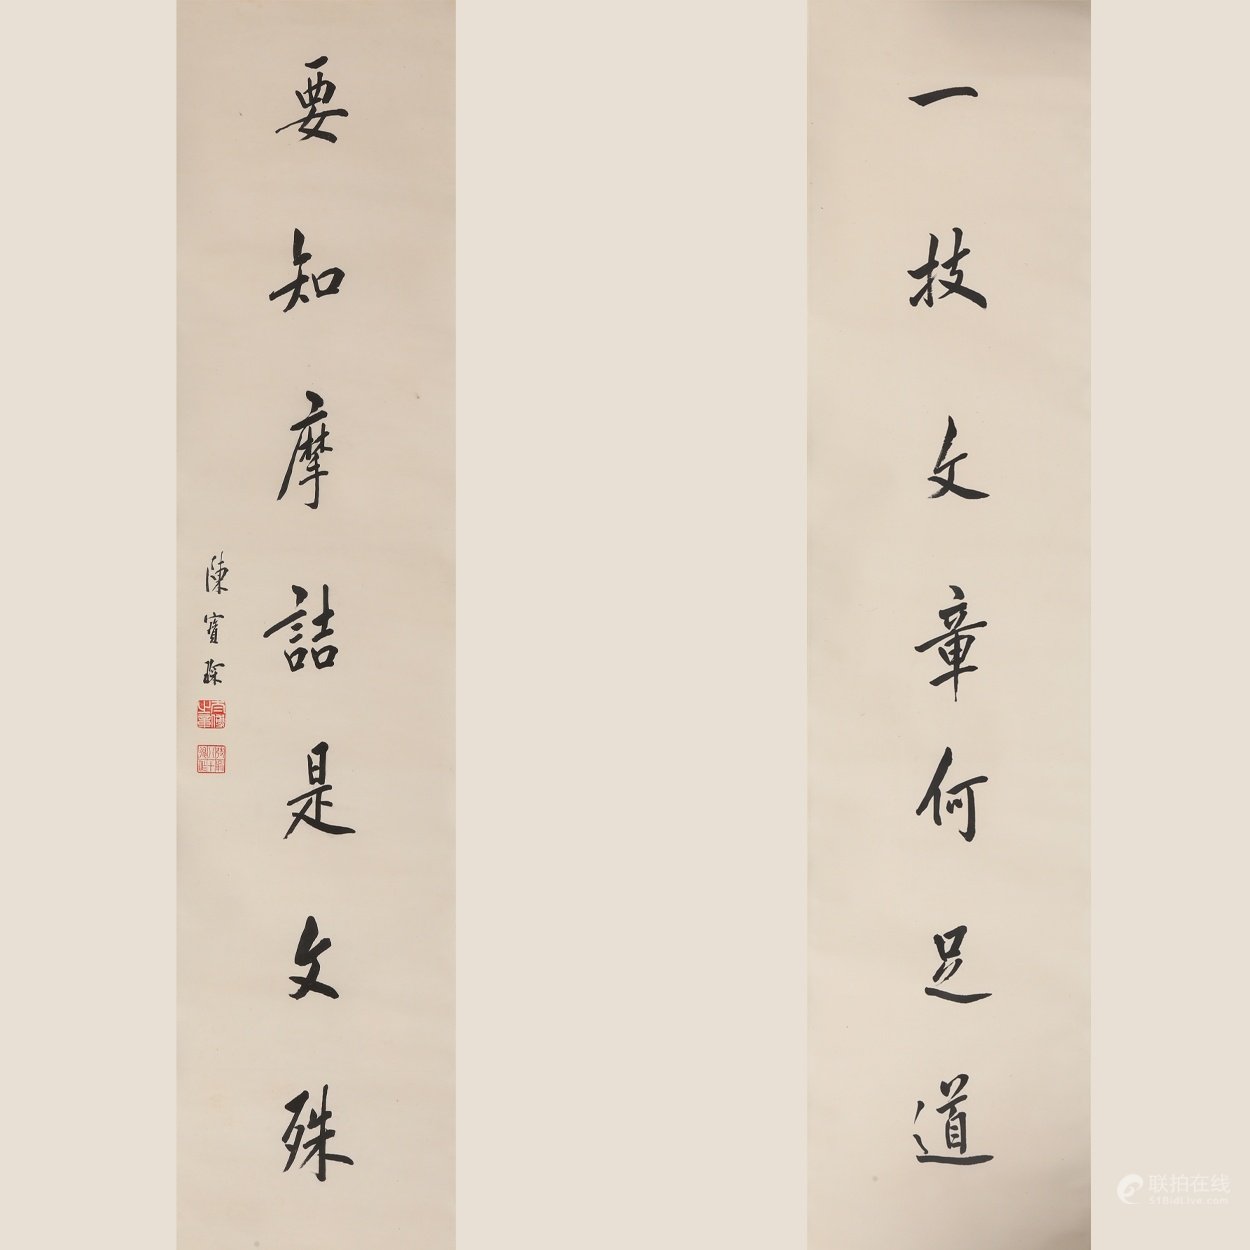 一技文章何足道
要知摩詰是文殊
陳寶琛
太傅之章
联拍在线
51BidLive.com